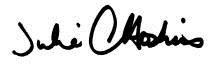 Julie C Hoskins